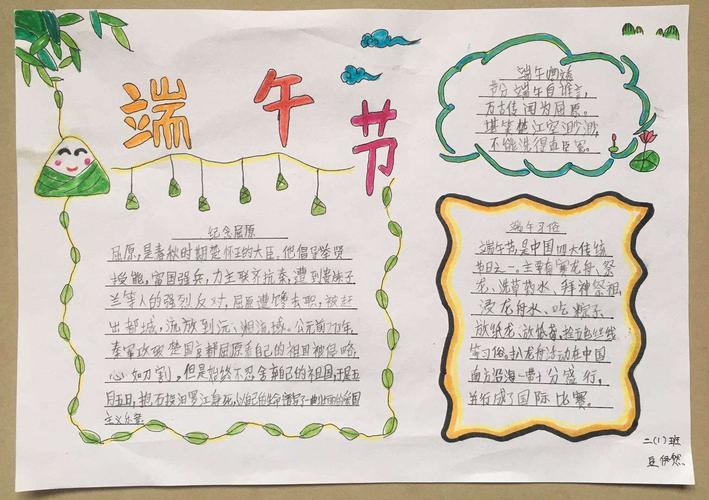 端午节
纪念屈原
屈原,是春秋时期楚怀王的大臣。他倡导举贤
授能,富国强兵,力主联齐抗秦,遭到贵族子
兰等人的强烈反对,屈原遭馋去职,被赶
出都城,流放到沅、湘流域。公元前278年,
秦军攻破楚国京都屈原看自己的祖国被侵略,
心如刀割,但是始终不忍舍弃自己的祖国,于是五
月五日,抱石投汨罗江身死,以自己的生命谱写了一曲壮丽的爱国
主义乐章
端午
节分端午自谁言,
万古传闻为屈原。
堪笑楚江空渺渺,
不能洗得直臣冤。
端午习俗
端午节,是中国四大传统
节日之一,主要有赛龙舟、祭
龙、洗草药水、拜神祭祖、
浸龙舟水、吃粽子、
放纸龙、放纸鸢、拴五色丝线
等习俗,扒龙舟活动在中国
南方沿海一带十分盛行,
并行成了国际比赛。
二(1)班